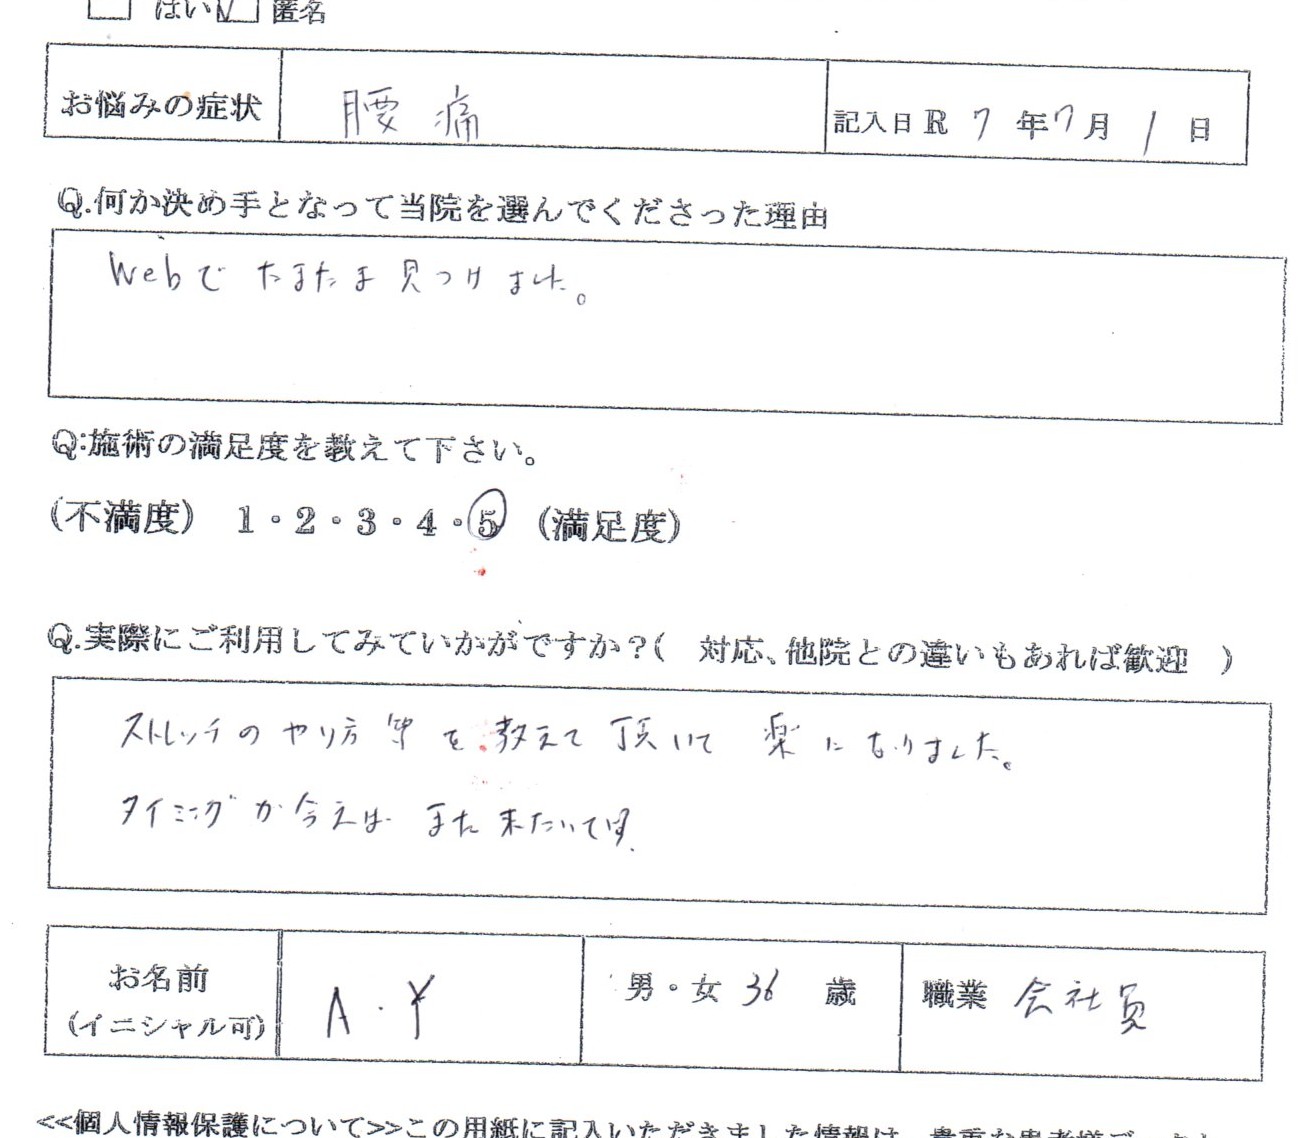 □ はい ☑ 匿名
お悩みの症状 腰痛 記入日 R 7 年 7 月 1 日
Q.何か決め手となって当院を選んでくださった理由
Webで たまたま 見つけました。
Q:施術の満足度を教えて下さい。
(不満度) 1・2・3・4・5 (満足度)
Q.実際にご利用してみていかがですか?( 対応、他院との違いもあれば歓迎 )
ストレッチの やり方 等 を 教えて 頂いて 楽 に なりました。
タイミング が 合えば また 来たいです。
お名前 A.Y 男・女 36 歳 職業 会社員
(イニシャル可)
<<個人情報保護について>>この用紙に記入いただきました情報は、貴重な患者様デ